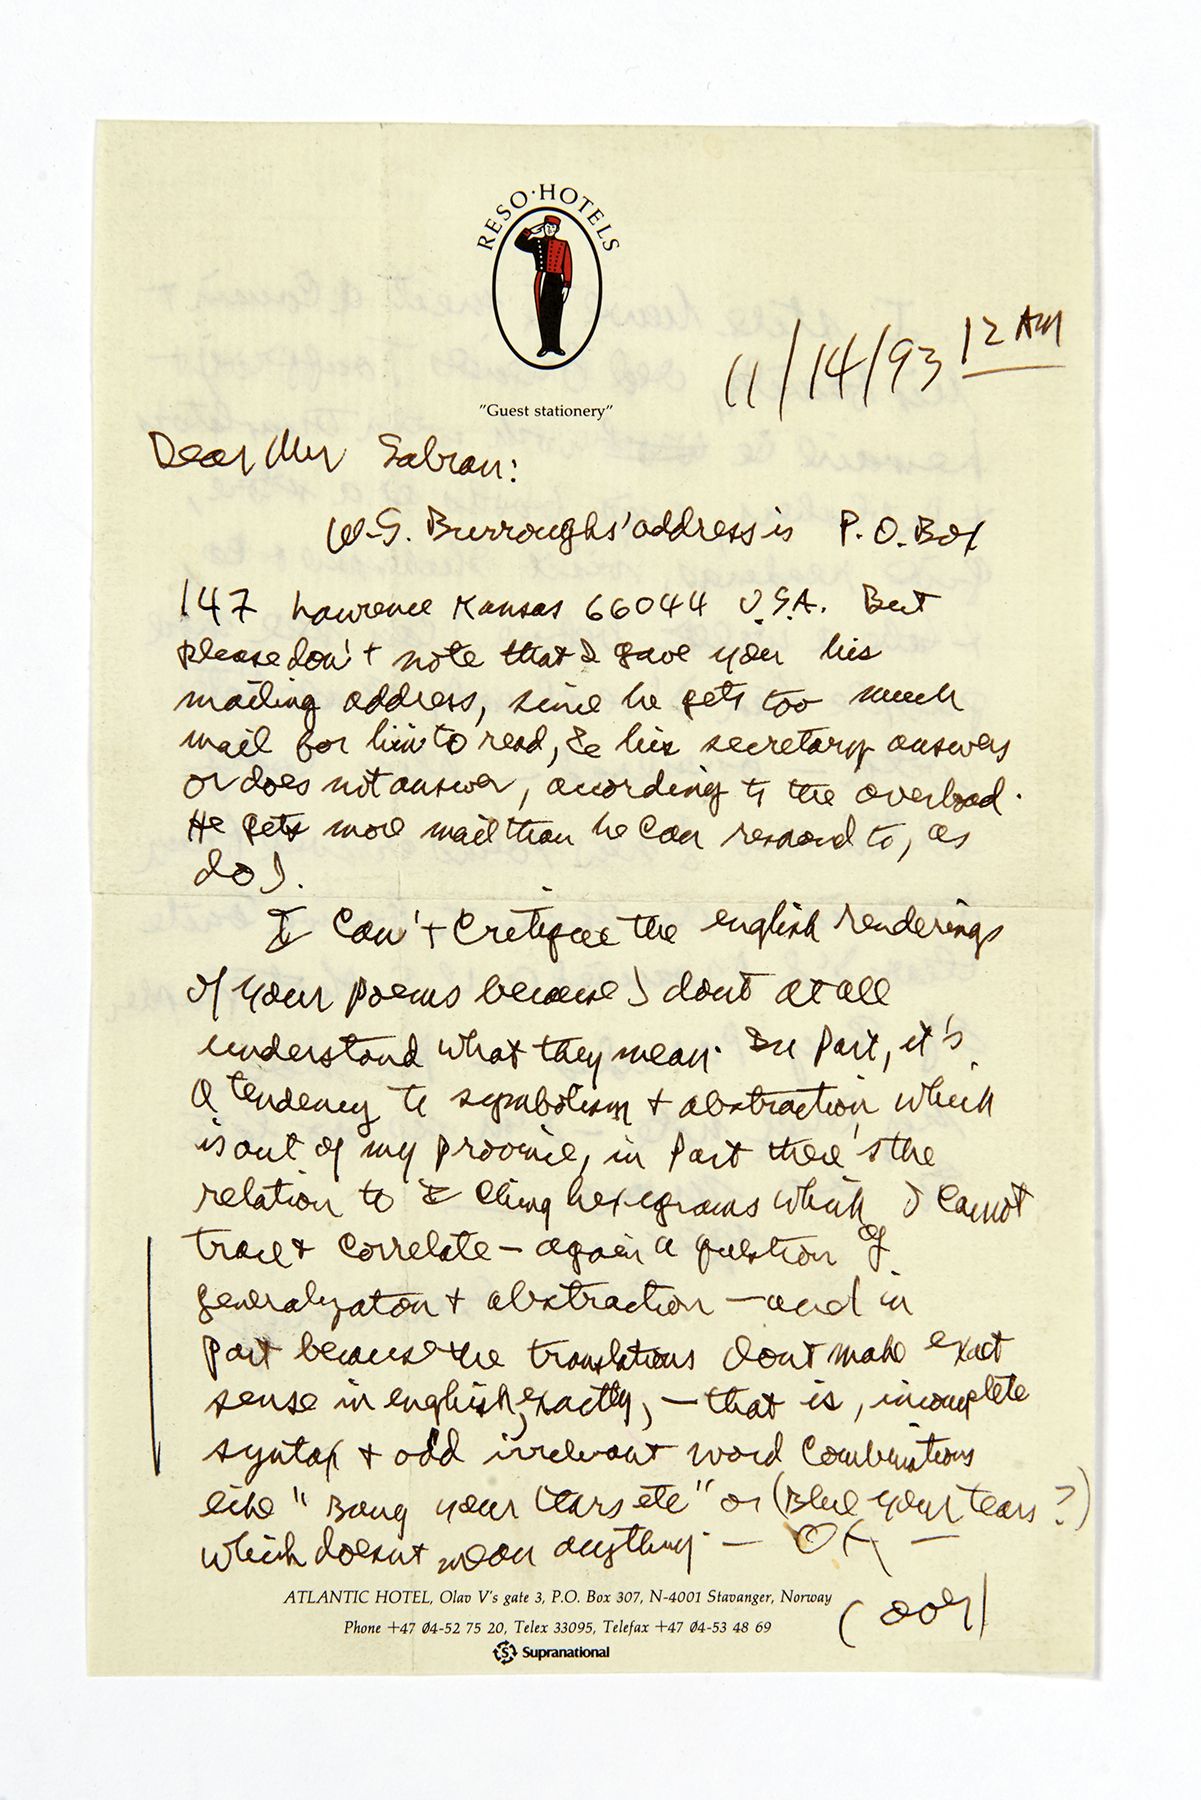 RESO·HOTELS
"Guest stationery"
11/14/93 12 AM
Dear Mr Sabran:
W.S. Burroughs' address is P.O. Box
147 Lawrence Kansas 66044 U.S.A. But
please don't note that I gave you his
mailing address, since he gets too much
mail for him to read, & his secretary answers
or does not answer, according to the overload.
He gets more mail than he can respond to, as
do I.
I can't critique the english renderings
of your poems because I dont at all
understand what they mean. In part, it's
a tendency to symbolism & abstraction which
is out of my province, in part there's the
relation to I Ching hexegrams which I cannot
trace & correlate — again a question of
generalization & abstraction — and in
part because the translations dont make exact
sense in english, exactly, — that is, incomplete
syntax & odd irrelevant word combinations
like " your ears etc" or (Blue your tears?)
which doesnt mean anything. — OK —
(over)
ATLANTIC HOTEL, Olav V's gate 3, P.O. Box 307, N-4001 Stavanger, Norway
Phone +47 04-52 75 20, Telex 33095, Telefax +47 04-53 48 69
Supranational